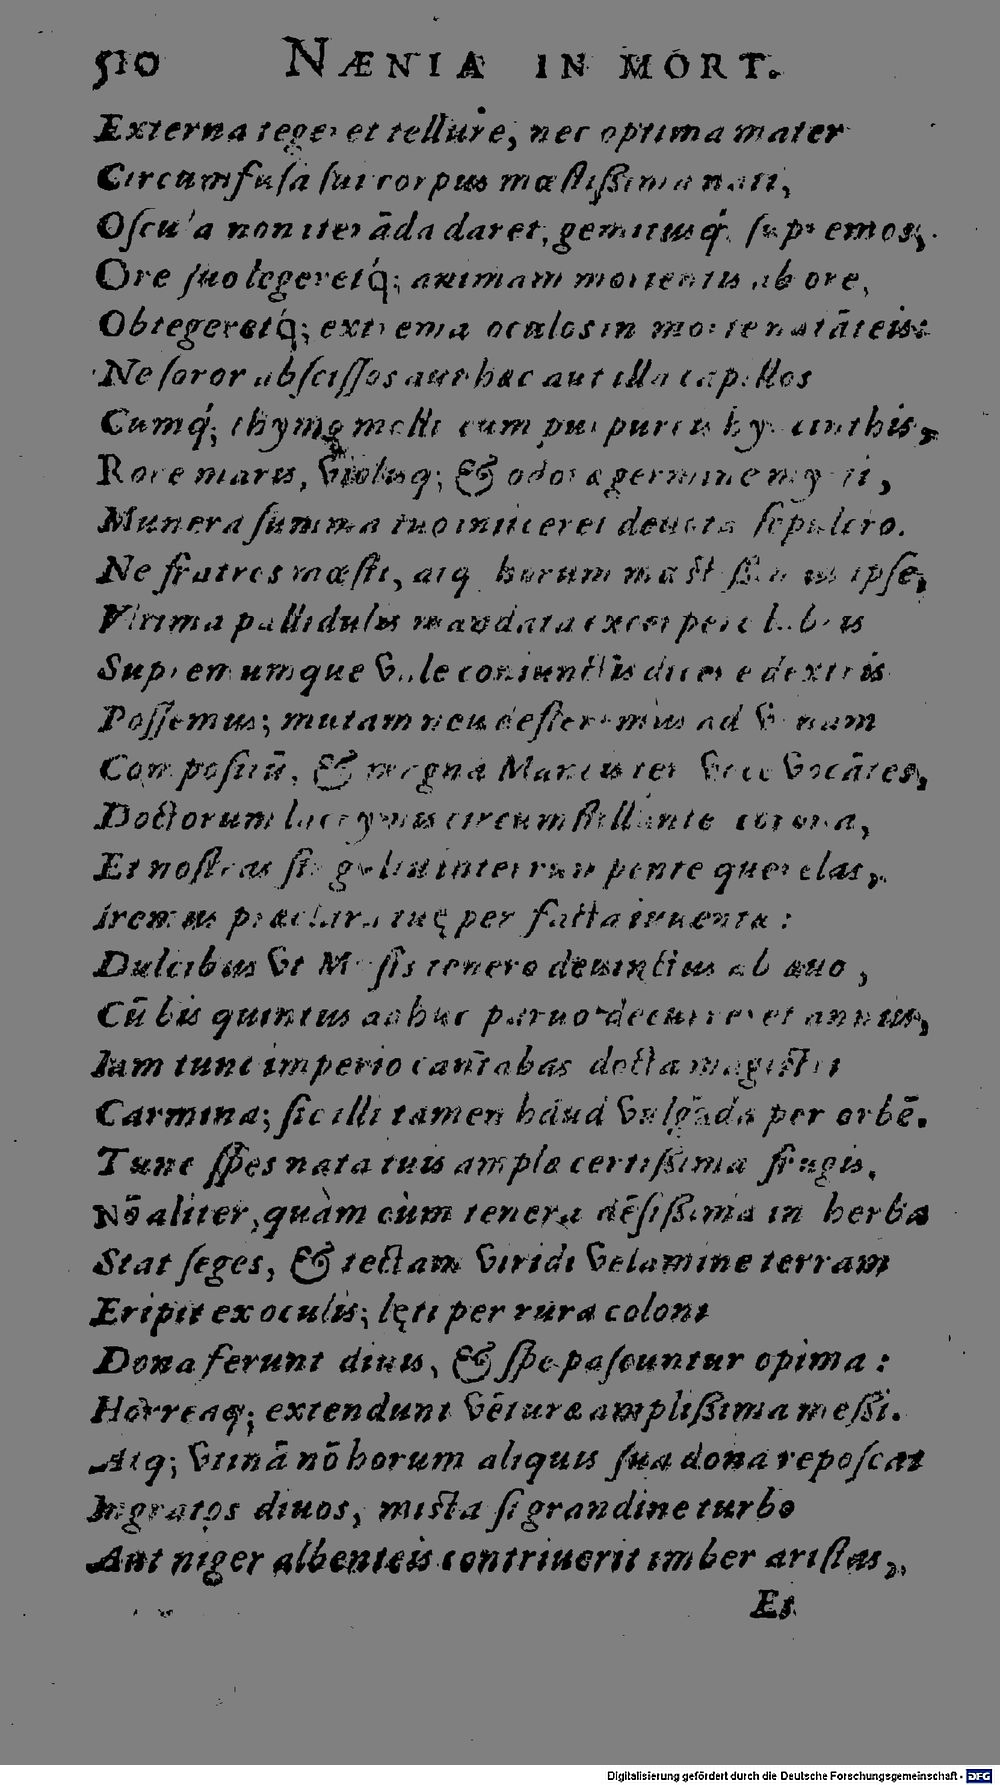 510 NÆNIA IN MORT.
Externa tegeret tellure, nec optima mater
Circumfusa sui corpus mæstißima nati,
Oscula non iterāda daret, gemitusq́; supremos,
Ore suo legeretq́; animam morientis ab ore,
Obtegeretq́; extrema oculos in morte natāteis:
Ne soror abscissos aut hæc aut illa capillos
Cumq́; thymo molli cum purpureis hyacinthis,
Rore maris, violisq; & odoræ germine myrti,
Munera summa tuo iniiceret deuota sepulcro.
Ne fratres mæsti, atq horum mæstißimus ipse,
Vltima pallidulis mandata excerpere labris
Supremumque vale coniunctis dicere dextris
Possemus; mutam neu defleremus ad vrnam
Compositū, & magna Maneis ter voce vocātes,
Doctorum lacrymis circumstillante corona,
Et nostras singultu interrumpente querelas,
Iremus præclara tuę per facta iuuentæ:
Dulcibus vt Musis tenero deuinctus ab æuo,
Cū bis quintus adhuc paruo decurreret annus,
Iam tunc imperio cantabas docta magistri
Carmina; sic illi tamen haud vulgāda per orbē.
Tunc spes nata tuis amplæ certißima frugis,
Nō aliter, quàm cùm tenera dēsißima in herba
Stat seges, & tectam viridi velamine terram
Eripit ex oculis; lęti per rura coloni
Dona ferunt diuis, & spe pascuntur opima:
Horreaq; extendunt vēturæ amplißima meßi.
Atq; vtinā nō horum aliquis sua dona reposcat
Ingratos diuos, mista si grandine turbo
Aut niger albenteis contriuerit imber aristas,
Et
Digitalisierung gefördert durch die Deutsche Forschungsgemeinschaft - DFG